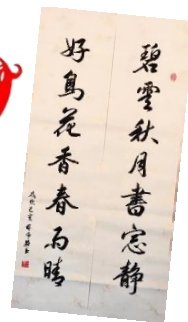 碧雲秋月書窓静
好鳥花香春雨晴